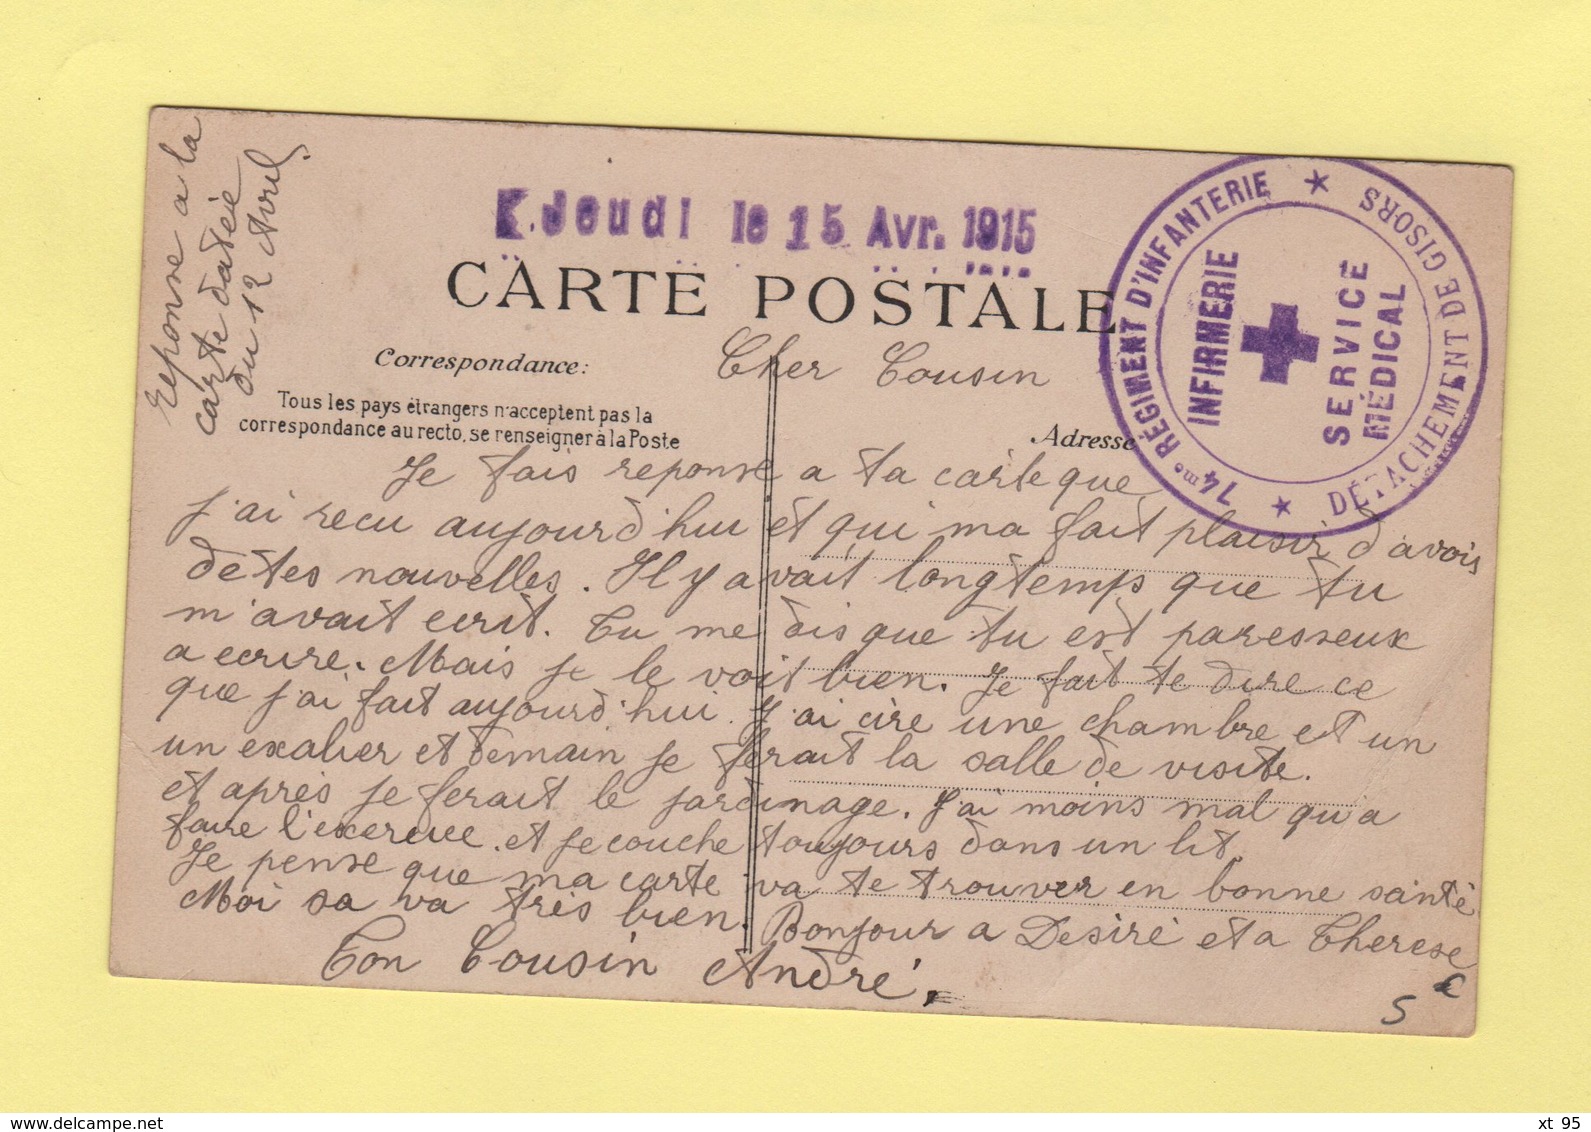 Reponse a la
carte datée
du 12 Avril.
K.Jeudi le 15 Avr. 1915
CARTE POSTALE
Correspondance:
Tous les pays étrangers n'acceptent pas la
correspondance au recto, se renseigner à la Poste
Adresse
74me RÉGIMENT D'INFANTERIE ★
DÉTACHEMENT DE GISORS ★
INFIRMERIE
SERVICE
MÉDICAL
Cher Cousin
Je fais reponse a ta carte que
j'ai recu aujourd'hui et qui ma fait plaisir d'avois
de tes nouvelles. Il y avait longtemps que tu
m'avait ecrit. Tu me dis que tu est paresseux
a ecrire. Mais je le voit bien. Je fait te dire ce
que j'ai fait aujourd'hui. J'ai cire une chambre et un
un exalier et demain je ferait la salle de visite.
et après je ferait le jardinage. J'ai moins mal qu'a
faire l'exercice. et je couche toujours dans un lit.
Je pense que ma carte va te trouver en bonne santé
Moi sa va très bien. Bonjour a Desiré et a Therese
Ton Cousin André.
5 €
www.delcampe.net
xt_95